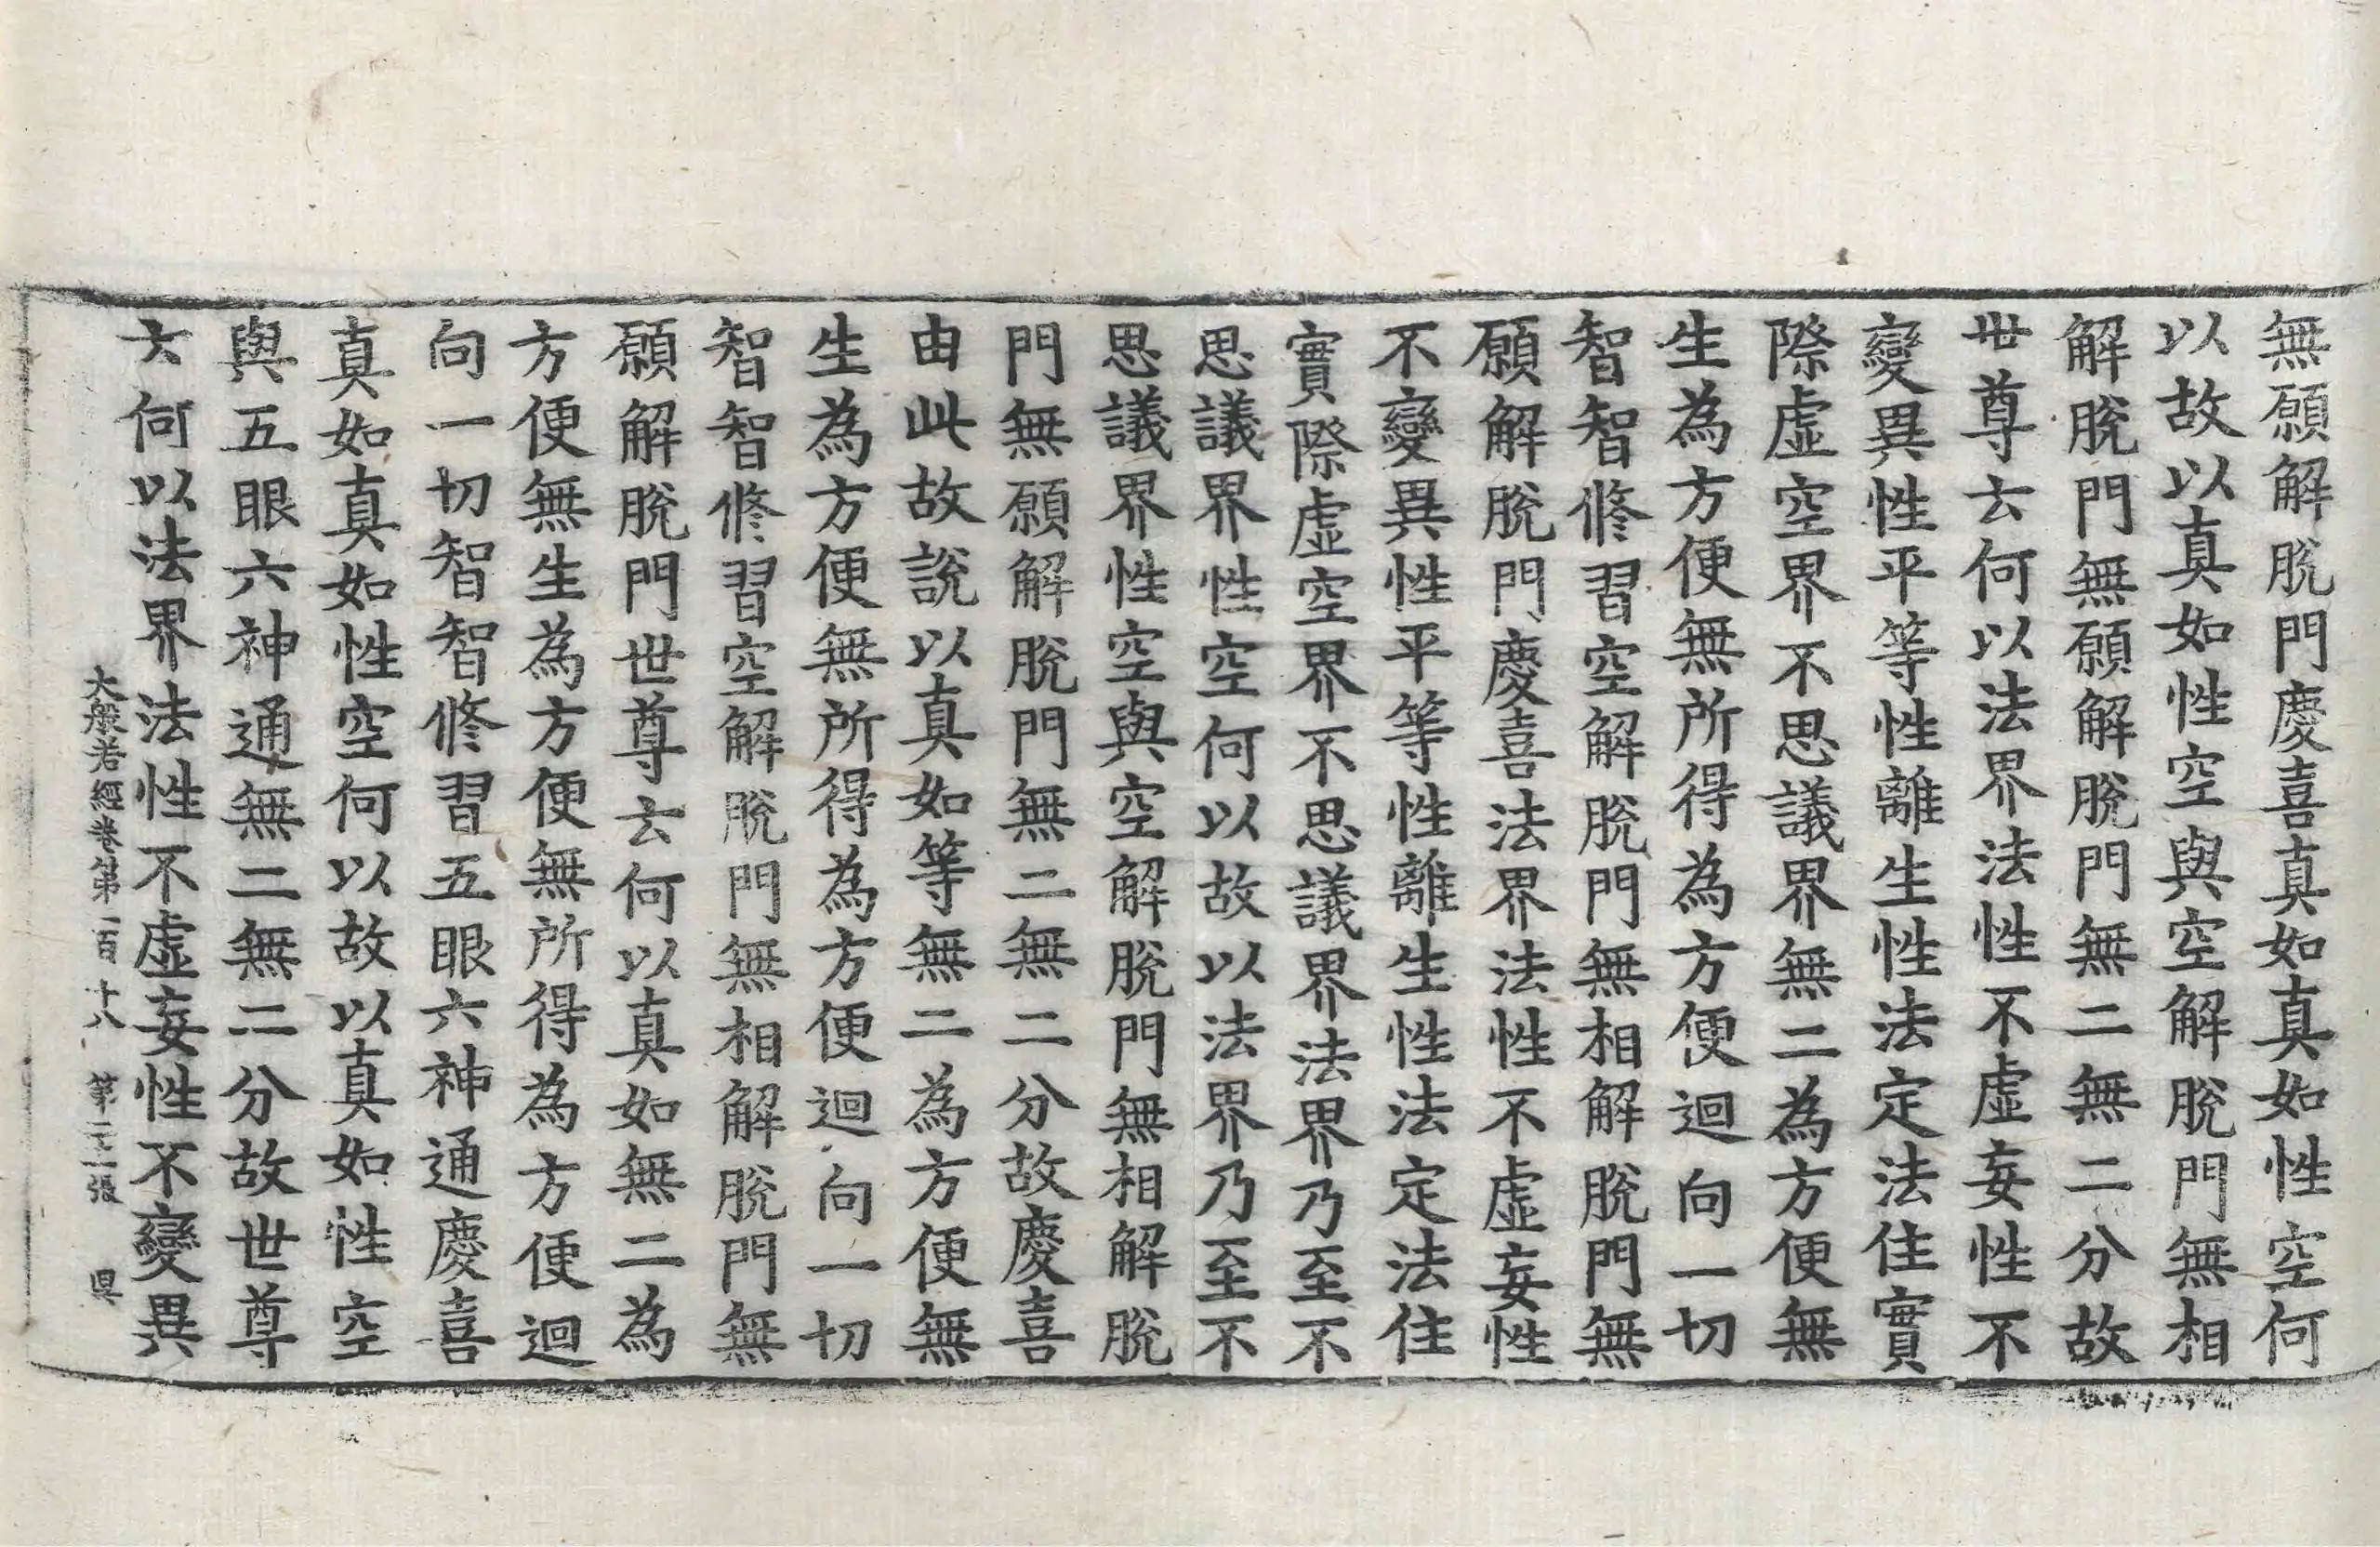 無願解脫門慶喜真如真如性空何
以故以真如性空與空解脫門無相
解脫門無願解脫門無二無二分故
世尊云何以法界法性不虛妄性不
變異性平等性離生性法定法住實
際虛空界不思議界無二為方便無
生為方便無所得為方便迴向一切
智智修習空解脫門無相解脫門無
願解脫門慶喜法界法性不虛妄性
不變異性平等性離生性法定法住
實際虛空界不思議界法界乃至不
思議界性空何以故以法界乃至不
思議界性空與空解脫門無相解脫
門無願解脫門無二無二分故慶喜
由此故說以真如等無二為方便無
生為方便無所得為方便迴向一切
智智修習空解脫門無相解脫門無
願解脫門世尊云何以真如無二為
方便無生為方便無所得為方便迴
向一切智智修習五眼六神通慶喜
真如真如性空何以故以真如性空
與五眼六神通無二無二分故世尊
云何以法界法性不虛妄性不變異
大般若經卷第一百十八 第二十一張 昃